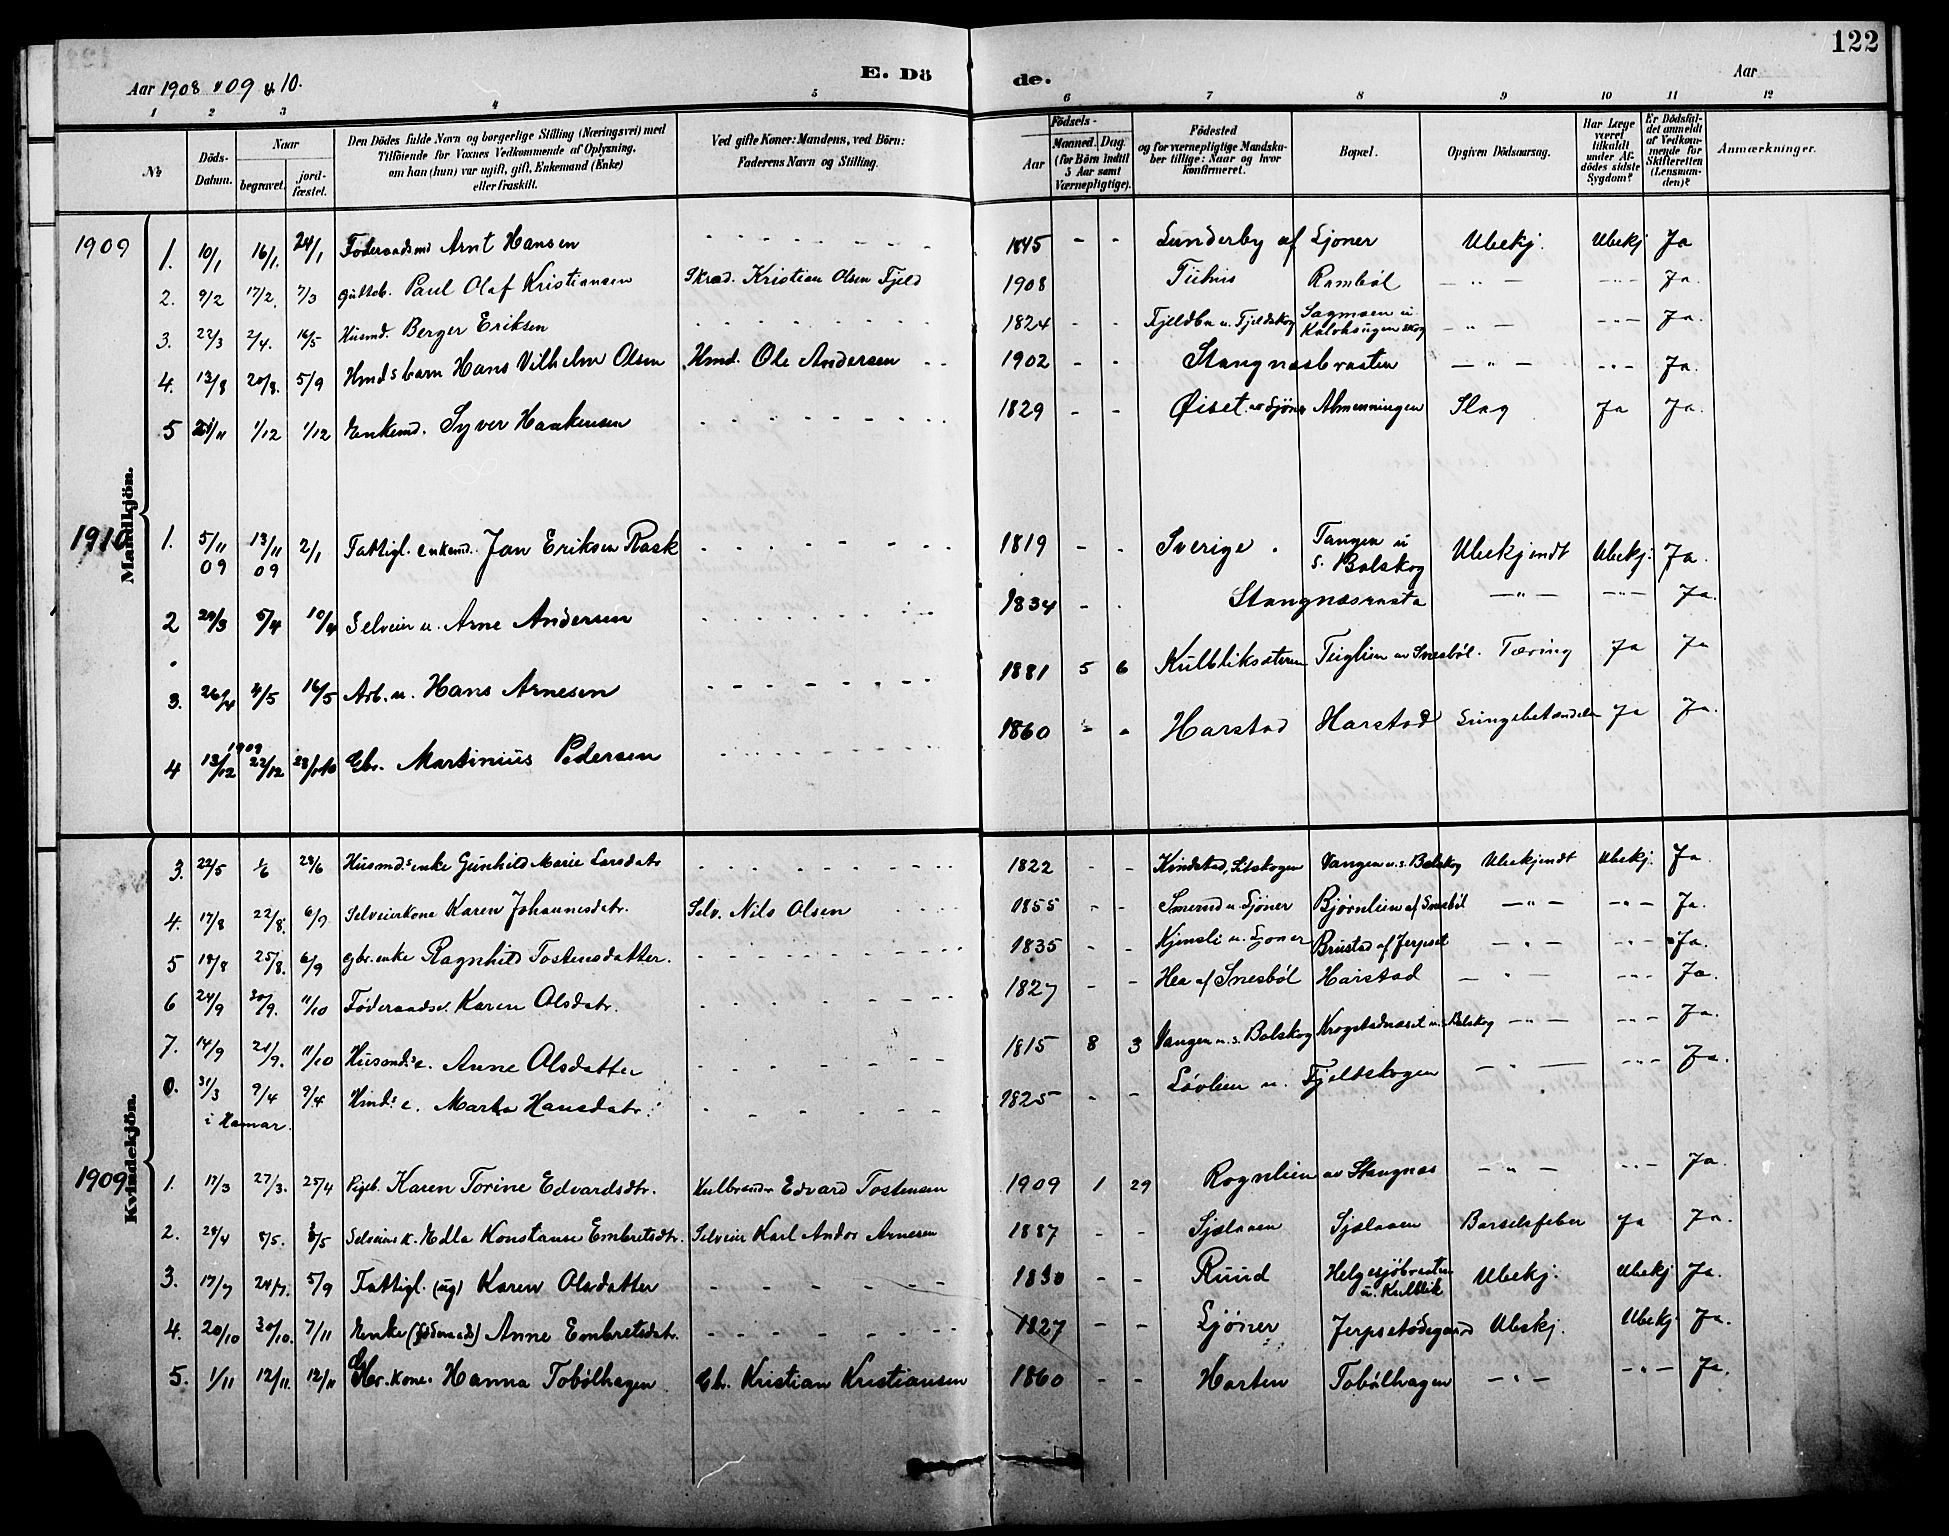 122
Aar 1908 & 09 & 10.
E. Dö
de.
Aar
1 2 3 4 5 6 7 8 9 10 11 12
№
Döds-Datum.
Naar
begravet.
jord-fæstet.
Den Dödes fulde Navn og borgerlige Stilling (Næringsvei) med
Tilföiende for Voxnes Vedkommende af Oplysning,
om han (hun) var ugift, gift, Enkemand (Enke)
eller fraskilt.
Ved gifte Koner: Mandens, ved Börn:
Faderens Navn og Stilling.
Födsels-
Aar
Maaned. Dag.
(for Börn indtil
3 Aar samt
Værnepligtige).
Födested
og for værnepligtige Mandska-
ber tillige: Naar og hvor
konfirmeret.
Bopæl.
Opgiven Dödsaarsag.
Har Læge
været
tilkaldt
under Af-
dödes sidste
Sygdom?
Er Dödsfal-
det anmeldt
af Vedkom-
mende for
Skifteretten
(Lensman-
den)?
Anmærkninger.
Mandkjön.
1909 1. 10/1 16/1. 24/1 Føderaadsmd Arnt Hansen - - 1845 - - Lunderby af Ljoner Ubekj. Ubekj Ja
2. 9/2 17/2. 7/3 gutteb. Paul Olaf Kristiansen Skræd. Kristian Olsen Fjeld 1908 Rambøl - " - - " - Ja.
3. 22/3 2/4. 16/5 Husmd. Berger Eriksen - - 1824 - - Fjeldbu u. Fjeldskog Sagmoen u. - " - - " - Ja.
4. 13/8 20/8. 5/9 Hmds barn Hans Vilhelm Olsen Hmd. Ole Andersen - - 1902 - - Stangnæsbraaten - " - - " - Ja.
5 21/11 1/12 1/12 Enkemd. Syver Haakensen - - 1829 - - Øiset av Ljöner Almenningen Slag Ja Ja.
1910 1. 5/11 09 13/11 09 2/1 Fattigl. enkemd. Jan Eriksen Rask - - 1819 - - Sverige. Tangen u s. Bolskog Ubekjendt Ubekj. Ja.
2 20/3 5/4 10/4 Selveier u. Arne Andersen - - 1834 - - Stangnæsrasta - " - - " - Ja.
3. 26/4 4/5 16/5 Arb. u. Hans Arnesen - - 1881 5 6 Kulbliksæteren Teiglien av Snesböl. Tæring Ja Ja
4 13/12 1909 22/12 23/1 10 Gbr. Martinius Pedersen - - 1860 - - Harstad Harstad Lungebetændelse Ja Ja.
Kvindekjön.
3. 22/5 1/6 28/6 Husmds enke Gunhild Marie Larsdatr - - 1822 - - Kindstad, Vangen u. s. Bolskog Ubekjendt Ubekj. Ja.
4. 17/8 22/8. 6/9 Selveierkone Karen Johannesdatr. Selv. Nils Olsen - - 1855 - - Smerud u. Ljöner Bjørnlien af Snesböl - " - - " - Ja.
5 18/8 25/8. 6/9 gbr. enke Ragnhild Tostensdatter. - - 1835 - - Kjensli u. Ljoner Brustad af Jerpset - " - - " - Ja.
6 24/9 30/9. 11/10 Føderaadse. Karen Olsdatr. - - 1827 - - Hea af Snesböl Harstad - " - - " - Ja.
7. 14/9 21/9. 11/10 Husmds e. Anne Olsdatter - - 1815 8 3 Vangen u. s. Bolskog Krogstadnæset u. Bolskog - " - - " - Ja.
0. 31/3 9/4 9/4 Hmds e. Marta Hansdatr. - - 1825 - - Løvlien u. Fjeldskogen - " - - " - Ja.
i Hamar.
1909 1. 17/3 27/3. 25/4 Pigeb. Karen Torine Edvardsdtr. Kulbrænder Edvard Tostensen 1909 1 29 Rognlien av Stangnæs - " - - " - Ja.
2. 28/4 8/5. 8/5 Selveiers k. Edla Konstanse Embretsdtr. Selveier Karl Andor Arnesen 1887 - - Sjølaaen Sjølaaen Barselsfeber Ja Ja.
3. 17/7 24/7. 5/9 Fattigl. (ug) Karen Olsdatter - - 1830 - - Ruud Helgesjøbraaten u. Kulblik Ubekj. Ubekj Ja.
4. 20/10 30/10. 7/11 Enke (føderaads) Anne Embretsdatr. - - 1827 - - Ljöner Jerpsetødegaard Ubekj. Ubekj. Ja.
5. 1/11 12/11. 12/11 Gbr. kone. Hanna Tobølhagen Gb. Kristian Kristiansen 1860 - - Harten Tobølhagen - " - - " - Ja.